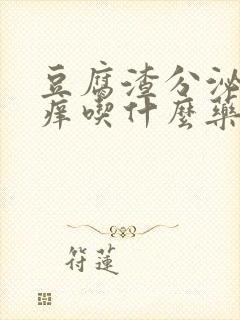 豆腐渣分泌
痒喫什麼藥
符蓮